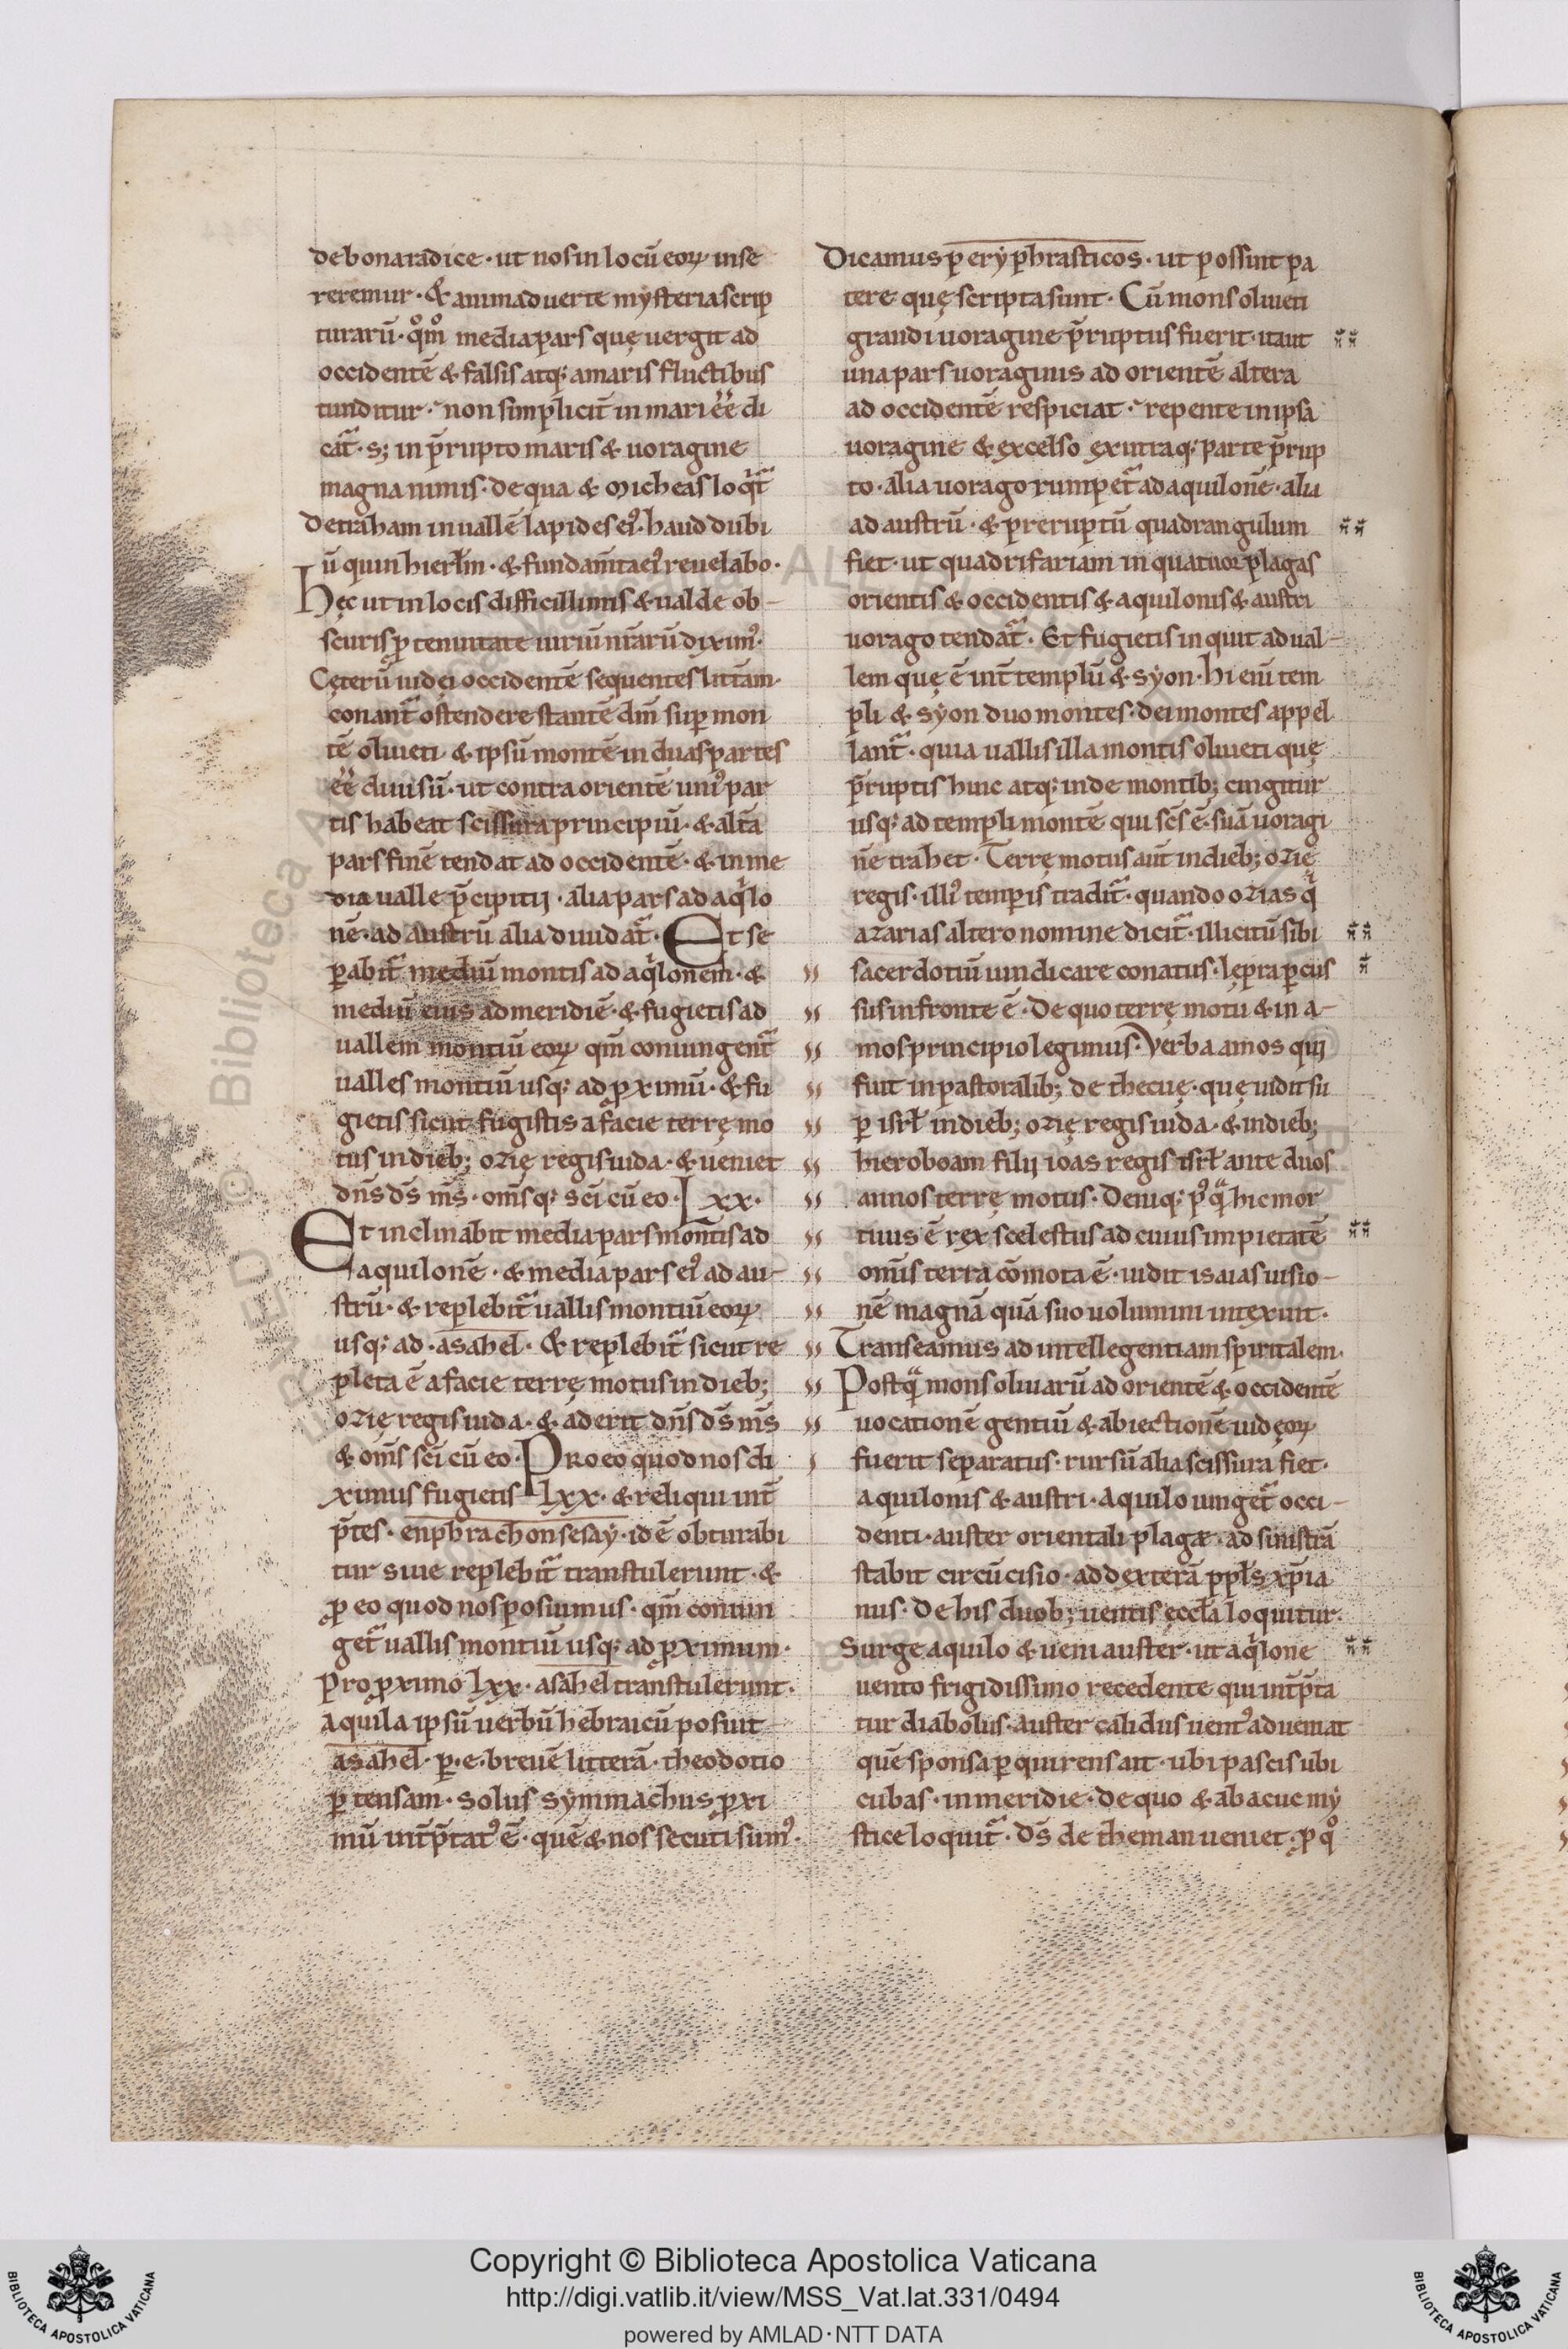 de bona radice · ut nos in locū eoꝝ inse
reremur · & animaduerte mysteria scrip
turarū · qm̊ media pars quę uergit ad
occidentē & falsis atq; amaris fluctibus
tunditur · non simplicit̄ in mari ēē di
cat̄ · s; in p̄rupto maris & uoragine
magna nimis · de qua & micheas loqt̄
Detraham in uallē lapides eiꝰ · haud dubi
ū quin hierłm · & fundam̄ta eiꝰ reuelabo ·
Hęc ut in locis difficillimis & ualde ob-
scuris ꝓ tenuitate uiriū nr̄arū diximꝰ ·
Cęterū iudei occidentē sequentes litt̄am ·
conant̄ ostendere stantē dn̄m suꝑ mon
tē oliueti & ipsū montē in duas partes
ēē diuisū · ut contra orientē uniꝰ par
tis habeat scissura principiū · & alt̄a
pars finē tendat ad occidentē · & in me
dia ualle p̄cipitij · alia pars ad aqͥlo
nē · ad austrū alia diuidat̄ · Et se
ꝑabit̄ mediū montis ad aqͥlonem · &
mediū eius ad meridiē · & fugietis ad
uallem montiū eoꝝ qm̄ coniunget̄
ualles montiū usq; ad ꝓximū · & fu
gietis sicut fugistis a facie terrę mo
tus in dieb; ozię regis iuda · & ueniet
dn̄s ds̄ ms̄ · om̄sq; sc̄i cū eo · Lxx ·
Et inclinabit media pars montis ad
aquilonē · & media pars eiꝰ ad au-
strū · & replebit̄ uallis montiū eoꝝ
usq; ad · asahel · & replebit̄ sicut re
pleta ē a facie terrę motus in dieb;
ozię regis iuda · & aderit dn̄s ds̄ ms̄
& om̄s sc̄i cū eo · Pro eo quod nos di
ximus fugietis Lxx · & reliqui int̄
p̄tes · enphrachonsesaÿ · id ē obturabi
tur siue replebit̄ transtulerunt · &
ꝓ eo quod nos posiumus · qm̄ coniun
get̄ uallis montiū usq; ad ꝓximum ·
Pro ꝓximo lxx · asahel transtulerunt ·
Aquila ipsū uerbū hebraicū posuit
asahel · ꝑ · e · breuē litterā · theodotio
ꝑ tensam · Solus sÿmmachus ꝓxi
mū int̄p̄tatꝰ ē · quē & nos secuti sumꝰ ·
Dicamus perÿphrasticos · ut possint pa
tere quę scripta sunt · Cū mons oliueti
grandi uoragine p̄ruptus fuerit · ita ut
una pars uoraginis ad orientē altera
ad occidentē respiciat · repente in ipsa
uoragine & excelso ex utraq; parte p̄rup
to · alia uorago rumpet̄ ad aquilonē · alia
ad austrū · & preruptū quadrangulum
fiet · ut quadrifariam in quatuor plagas
orientis & occidentis & aquilonis & austri
uorago tendat̄ · Et fugietis inquit ad ual-
lem quę ē int̄ templū & sÿon · hi eni̅ tem
pli & sÿon duo montes · dei montes appel
lant̄ · quia uallis illa montis oliueti quę
p̄ruptis hinc atq; inde montib; cingitur
usq; ad templi montē qui sc̄s ē · suā uoragi
nē trahet · Terrę motus aut̄ in dieb; ozię
regis · illiꝰ temꝑis tradit̄ · quando ozias qͥ
azarias altero nomine dicit̄ · illicitū sibi
sacerdotiū uindicare conatus · lepra ꝑcus
sus in fronte ē · De quo terrę motu & in a-
mos principio legimus · Verba amos qui
fuit in pastoralib; de thecuę · quę uidit su
ꝑ isrł in dieb; ozię regis iuda · & in dieb;
hieroboam filij ioas regis isrł ante duos
annos terrę motus · Deniq; pꝰqͣ hic mor
tuus ē rex scelestus ad cuius impietatē
om̄is terra cōmota ē · uidit isaias uisio-
nē magnā quā suo uolumini intexuit ·
Transeamus ad intellegentiam spiritalem ·
Postqͣ mons oliuarū ad orientē & occidentē
uocationē gentiū & abiectionē iudęoꝝ
fuerit separatus · rursū alia scissura fiet ·
aquilonis & austri · Aquilo iunget̄ occi-
denti · auster orientali plagæ · ad sinistrā
stabit circūcisio · ad dexterā ppłs xp̄ia
nus · De his duob; uentis ęccła loquitur ·
Surge aquilo & ueni auster · ut aqͥlone
uento frigidissimo recedente qui int̄p̄ta
tur diabolus · auster calidus uentꝰ adueniat
quē sponsa ꝑquirens ait · ubi pascis ubi
cubas · in meridie · De quo & abacuc mÿ
stice loquit̄ · Ds̄ de theman ueniet · ꝓ qͦ
Copyright © Biblioteca Apostolica Vaticana
http://digi.vatlib.it/view/MSS_Vat.lat.331/0494
powered by AMLAD · NTT DATA
BIBLIOTECA APOSTOLICA VATICANA
BIBLIOTECA APOSTOLICA VATICANA